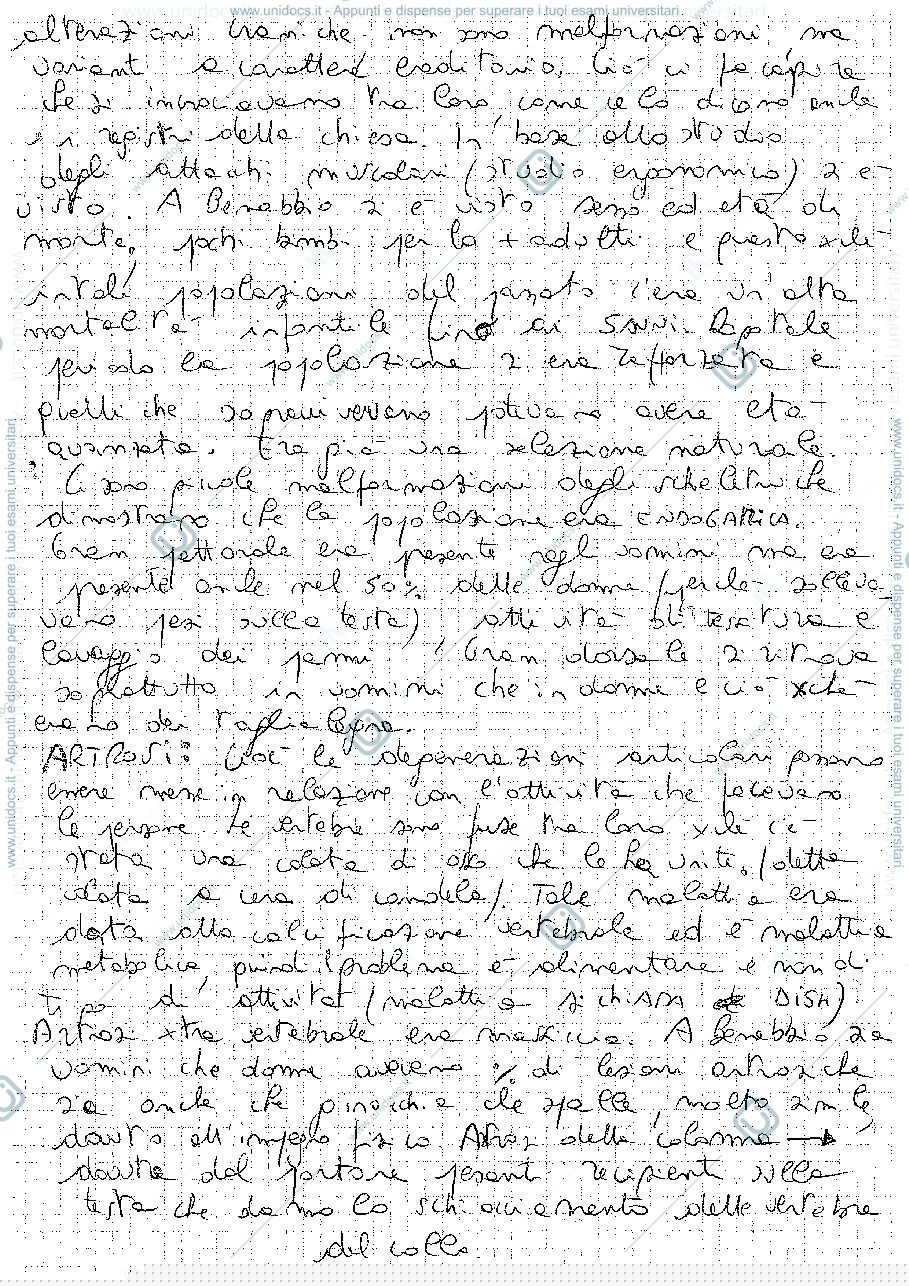 www.unidocs.it - Appunti e dispense per superare i tuoi esami universitari
alterazioni craniche non sono malformazioni, ma
varianti a carattere ereditario. Ciò ci fa capire
che si incrociavano tra loro, come ce lo dicono anche
i registri della chiesa. In base allo studio
degli attacchi muscolari (studio ergonomico) si è
visto. A Benabbio si è visto sesso ed età di
morte, pochi bimbi per lo + adulti e questo
in tali popolazioni del passato c'era un'alta
mortalità infantile fino ai 5 anni. Dopo tale
periodo la popolazione si era rafforzata e
quelli che sopravvivevano potevano avere età
avanzata. Era già una selezione naturale.
Ci sono piccole malformazioni degli scheletri che
dimostrano che la popolazione era ENDOGAMICA.
Gran pettorale era presente negli uomini ma era
presente anche nel 50% delle donne (perché solleva_
vano pesi sulla testa) attività di tessitura e
lavaggio dei panni. Gran dorsale si ritrova
soprattutto in uomini che in donne e ciò xchè
erano dei taglialegna.
ARTROSI: Cioè le degenerazioni articolari possono
essere messe in relazione con l'attività che facevano
le persone. Le vertebre sono fuse tra loro xchè c'è
stata una colata di osso che le ha unite. (detta
colata a cera di candela). Tale malattia era
data alla calcificazione vertebrale ed è malattia
metabolica, quindi il problema è alimentare e non di
tipo di attività (malattia si chiama DISH).
Artrosi xtra vertebrale era massiccia. A Benabbio sia
uomini che donne avevano % di lesioni artrosiche
sia anche che ginocchia che spalle, molto simile,
dovuto all'impegno fisico. Artrosi della colonna →
dovuta dal portare pesanti recipienti sulla
testa che danno lo schiacciamento delle vertebre
del collo.
www.unidocs.it - Appunti e dispense per superare i tuoi esami universitari
www.unidocs.it - Appunti e dispense per superare i tuoi esami universitari